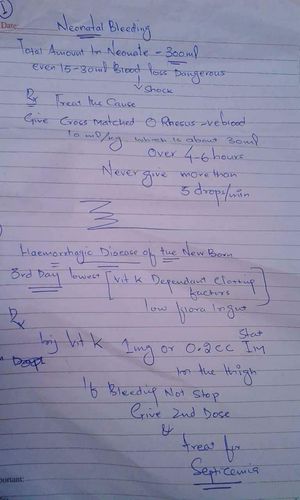 1
Date:
Neonatal Bleeding
Total Amount In Neonate - 300ml
even 15-30ml Blood loss Dangerous
↓ Shock
Rx Treat the Cause
Give Cross Matched O Rhesus -ve blood
10 ml/kg which is about 30ml
Over 4-6 hours
Never give more than
5 drops/min
Haemorrhagic Disease of the New Born
3rd Day lowest [Vit K Dependant Clotting
factors]
low flora in gut
Rx
Inj Vit K 1mg or 0.2cc Stat IM
in the thigh
If Bleeding Not Stop
Give 2nd Dose
&
treat for
Septicemia
portant: